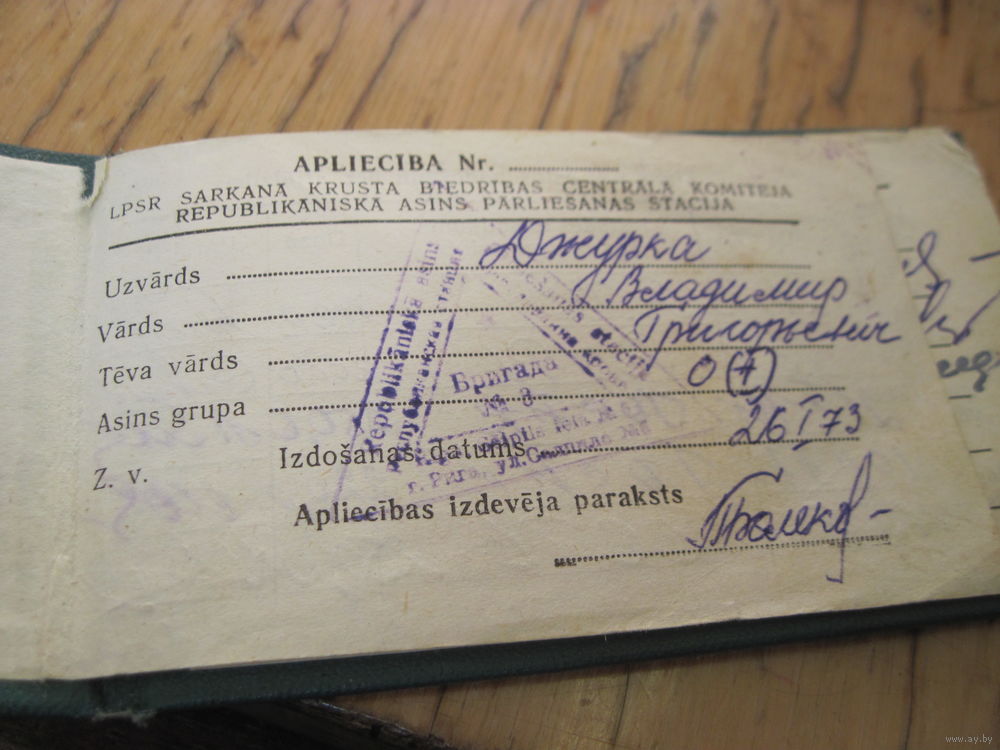 APLIECĪBA Nr. ..........
LPSR SARKANĀ KRUSTA BIEDRĪBAS CENTRĀLĀ KOMITEJA
REPUBLIKĀNISKĀ ASINS PĀRLIEŠANAS STACIJA
Uzvārds Джурка
Vārds Владимир
Tēva vārds Григорьевич
Asins grupa O (+)
Z. v.
Izdošanas datums 26 I 73
Apliecības izdevēja paraksts
Republikāniskā asins
Республиканская станция
Бригада
№ 8
г. Рига, ул.
www.ay.by